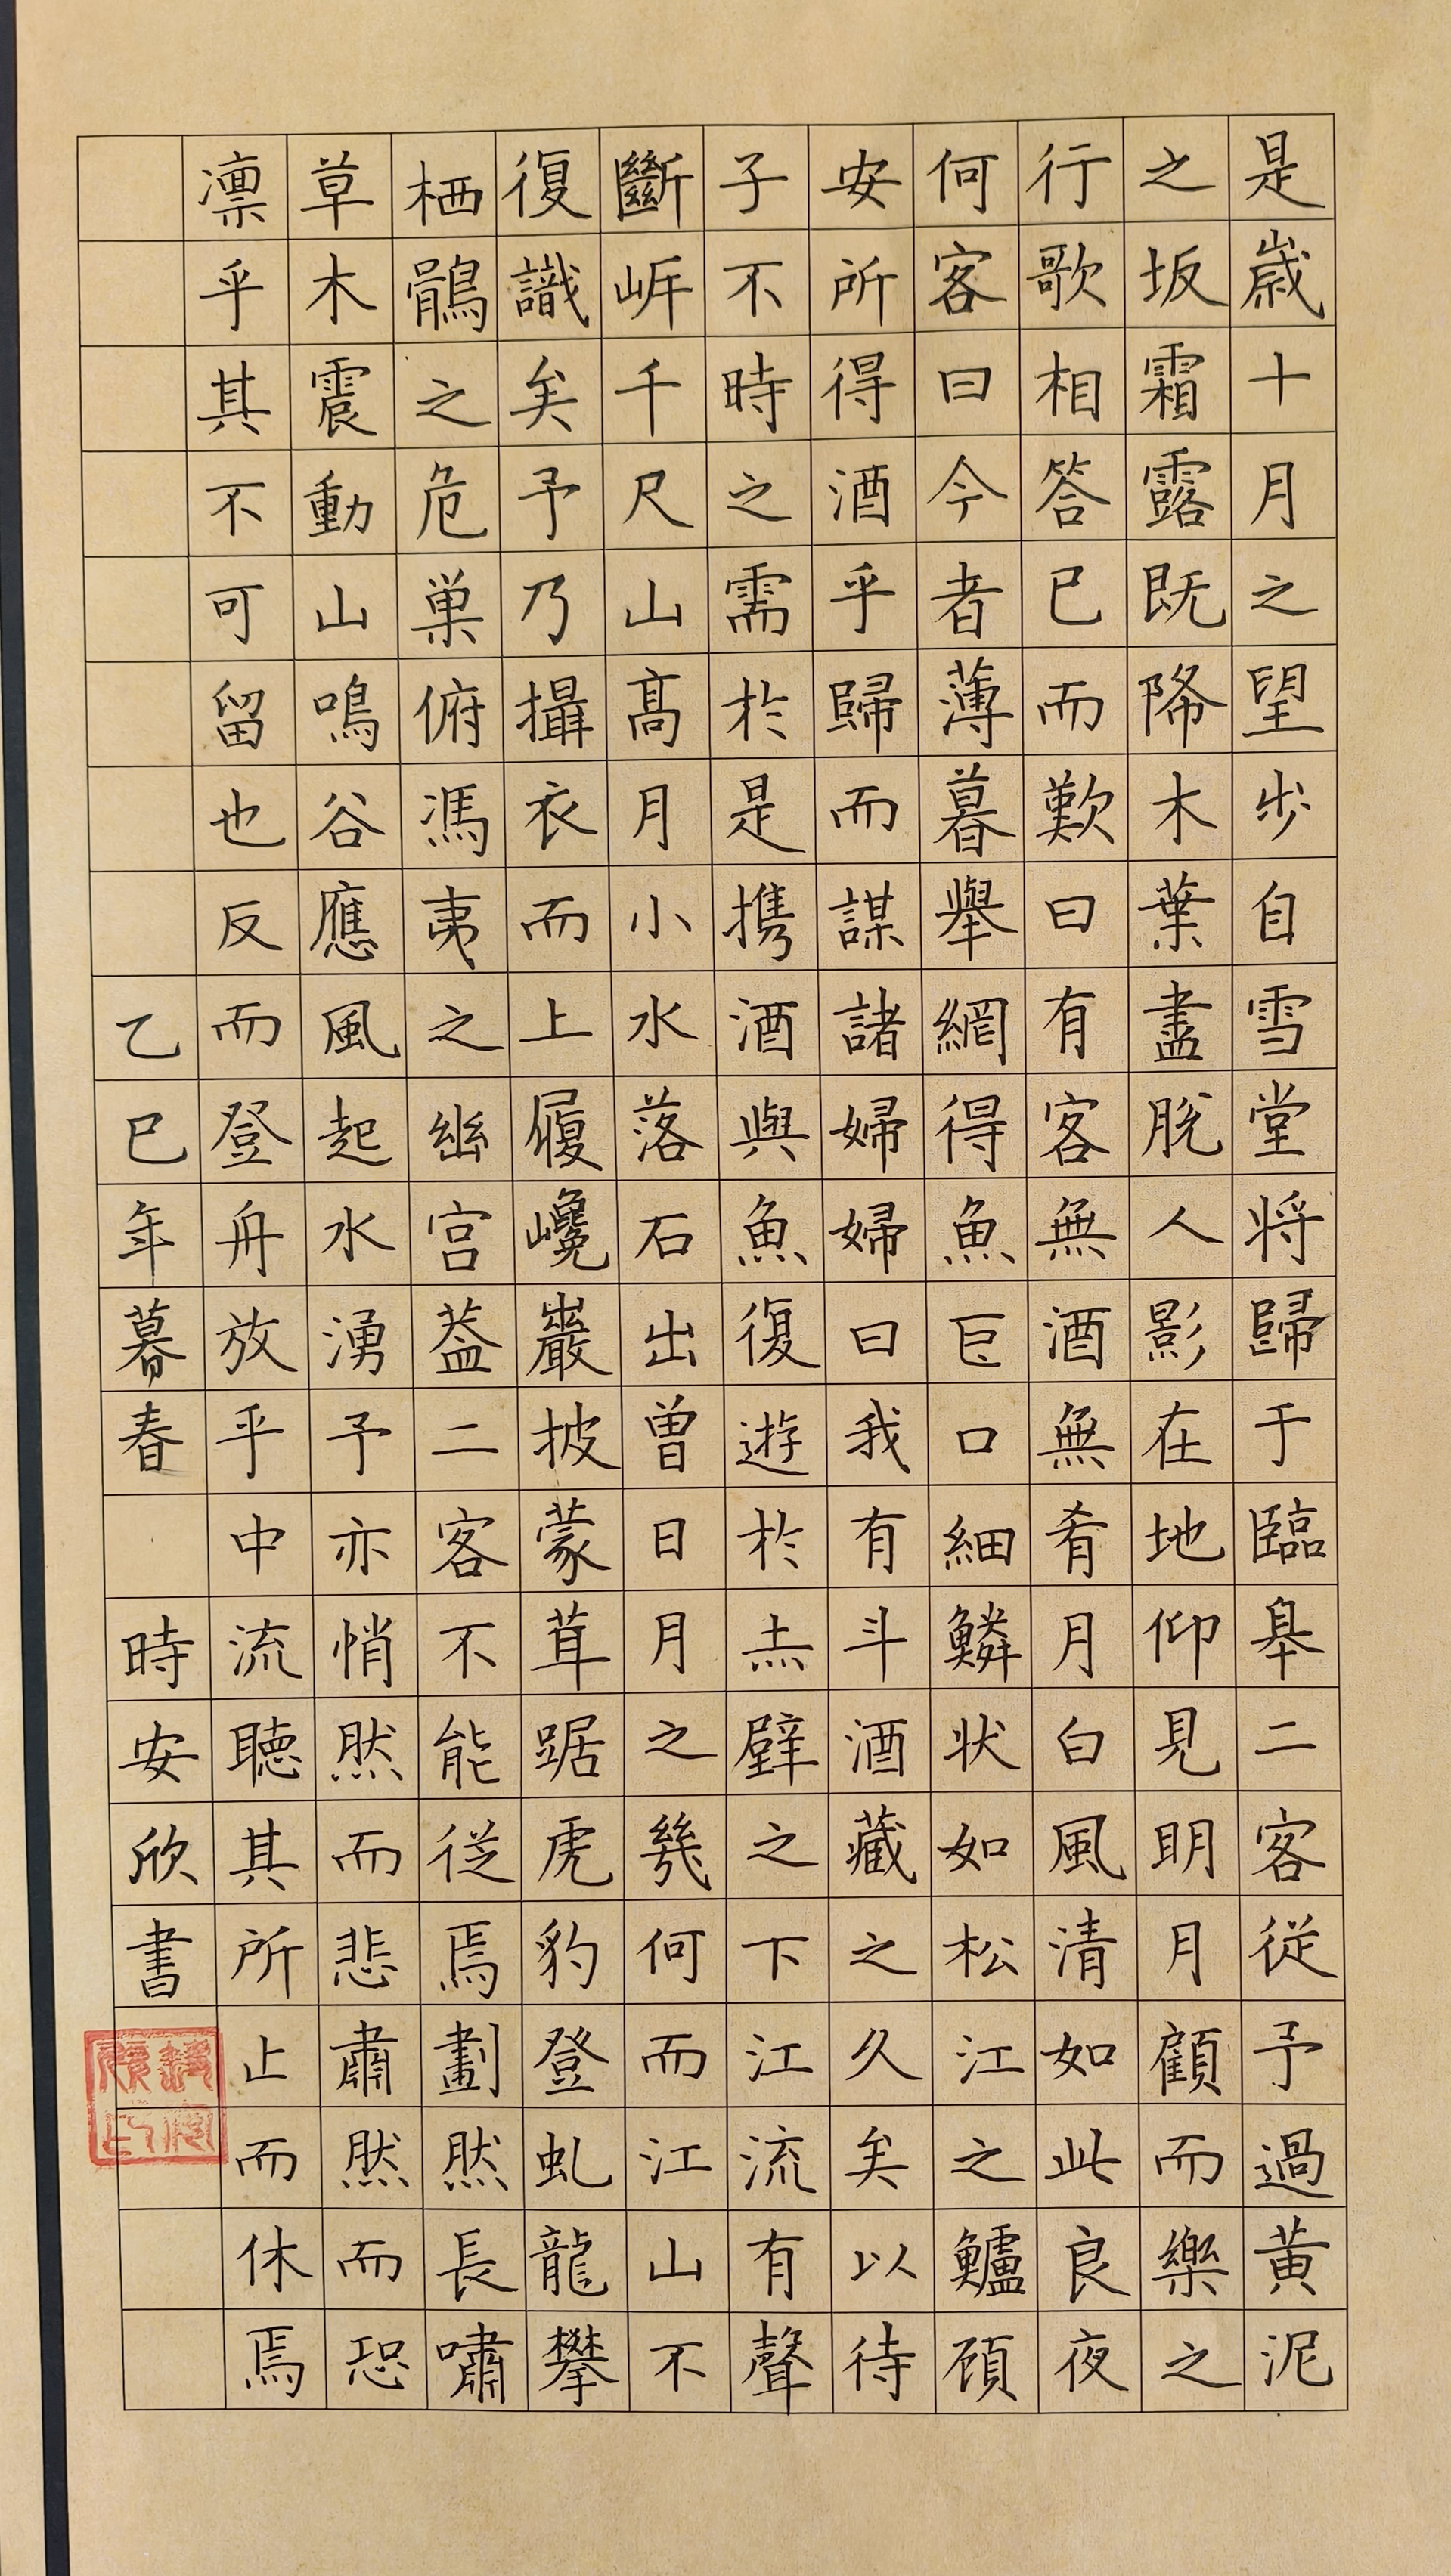 是歲十月之望步自雪堂将歸于臨皋二客從予過黃泥
之坂霜露既降木葉盡脫人影在地仰見明月顧而樂之
行歌相答已而歎曰有客無酒無肴月白風清如此良夜
何客曰今者薄暮舉網得魚巨口細鱗状如松江之鱸顧
安所得酒乎歸而謀諸婦婦曰我有斗酒藏之久矣以待
子不時之需於是攜酒與魚復遊於赤壁之下江流有聲
斷岸千尺山高月小水落石出曾日月之幾何而江山不
復識矣予乃攝衣而上履巉巖披蒙茸踞虎豹登虬龍攀
栖鶻之危巢俯馮夷之幽宮蓋二客不能從焉劃然長嘯
草木震動山鳴谷應風起水湧予亦悄然而悲肅然而恐
凛乎其不可留也反而登舟放乎中流聽其所止而休焉
乙巳年暮春 時安欣書